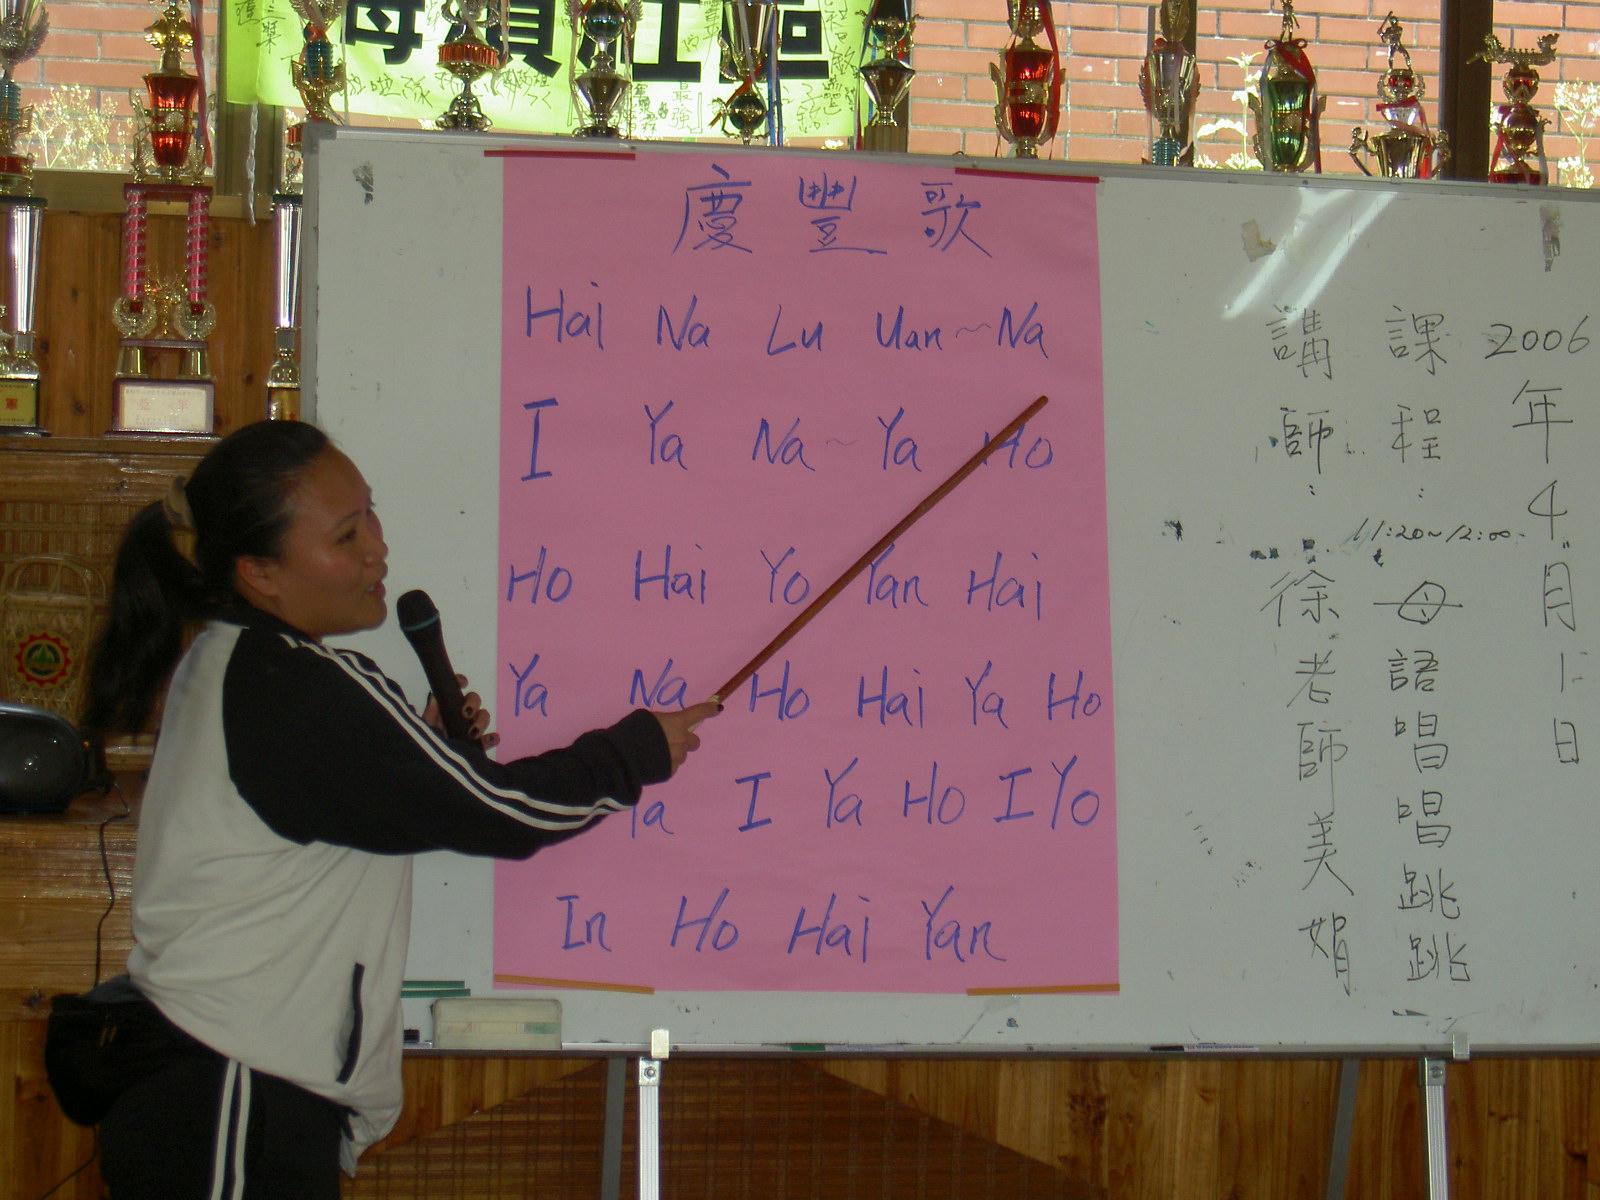 慶豐歌
Hai Na Lu Uan~Na
I Ya Na~Ya Ho
Ho Hai Yo Yan Hai
Ya Na Ho Hai Ya Ho
Ya I Ya Ho I Yo
In Ho Hai Yan
2006年4月1日
課程：母語唱唱跳跳
11:20~12:00
講師：徐老師美娟
社區
最強
亞軍